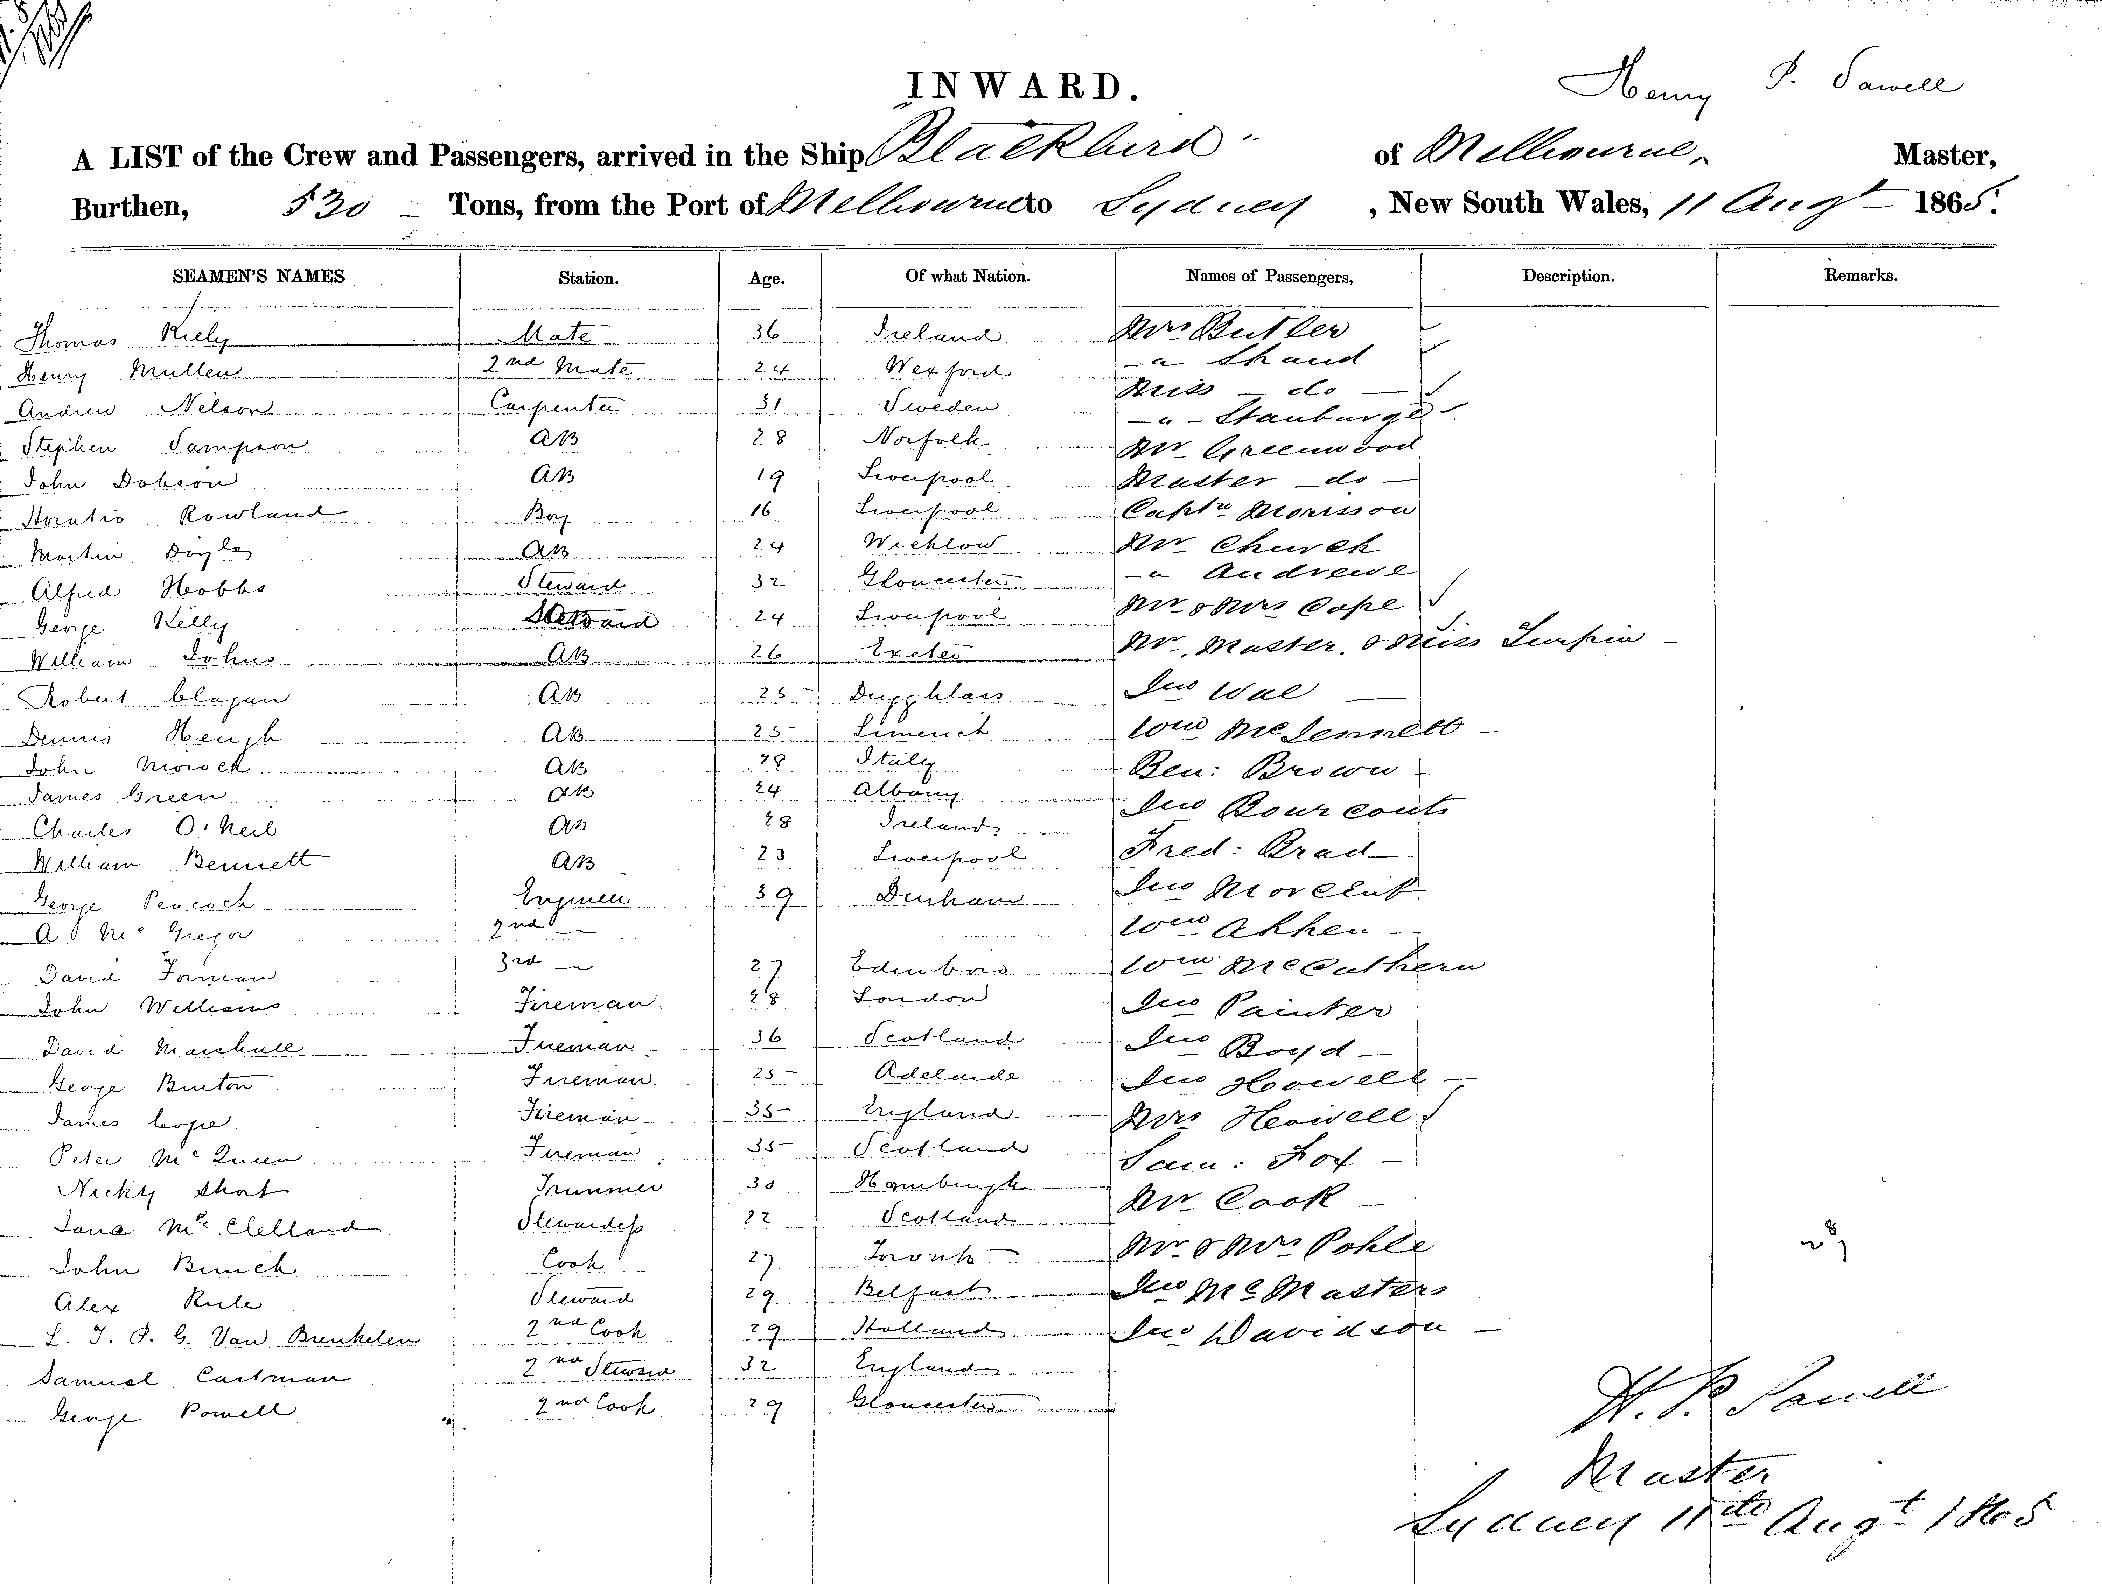 INWARD.
Henry P. Sawell
A LIST of the Crew and Passengers, arrived in the Ship Blackbird of Melbourne, Master,
Burthen, 530 Tons, from the Port of Melbourne to Sydney, New South Wales, 11 Augt 1865.
SEAMEN'S NAMES Station. Age. Of what Nation. Names of Passengers, Description. Remarks.
Thomas Kiely Mate 36 Ireland Mrs Butler
Henry Mullen 2nd Mate 24 Wexford -"- Shand
Andrew Nelson Carpenter 31 Sweden Miss - do -
-"- Stanburge
Stephen Sampson AB 28 Norfolk Mr Greenwood
John Dobson AB 19 Liverpool Master - do -
Horatio Rowland Boy 16 Liverpool Captn Morisson
Martin Doyle AB 24 Wicklow Mr Church
Alfred Hobbs Steward 32 Gloucester -"- Andrewe
George Kelly 24 Liverpool Mr & Mrs Cope
William Johns AB 26 Exeter Mr, Master, & Miss Turpin -
Robert Clagan AB 25 Jno Wal
Dennis Heugh AB 25 Limerick Wm McJennett -
John AB 28 Italy Ben: Brown
James Green AB 24 Albany Jno Bourcouts
Charles O'Neil AB 28 Ireland Fred: Brad
William Bennett AB 23 Liverpool Jno
George Peacock Engineer 39 Durham Wm
A McGregor 2nd - Wm McCuthern
David Forman 3rd - 27 Edinboro Jno Painter
John Williams Fireman 28 London Jno Boyd -
David Marshall Fireman 36 Scotland Jno Howell -
George Burton Fireman 25 Adelaide
James Cope Fireman 35 England Mrs Howell
Peter McQueen Fireman 35 Scotland Sam: Fox -
Nickly Short Trimmer 30 Hamburgh Mr Cook -
Jane McClelland Stewardess 22 Scotland
John Bunch Cook 27 Mr & Mrs Pohle
Alex Rule Steward 29 Belfast Jno McMasters
L. J. P. G. Van Breukelen 2nd Cook 29 Holland Jno Davidson -
Samuel Eastman 2nd Steward 32 England
George Powell 2nd Cook 29 Gloucester
H. P. Sawell
Master
Sydney 11th Augt 1865